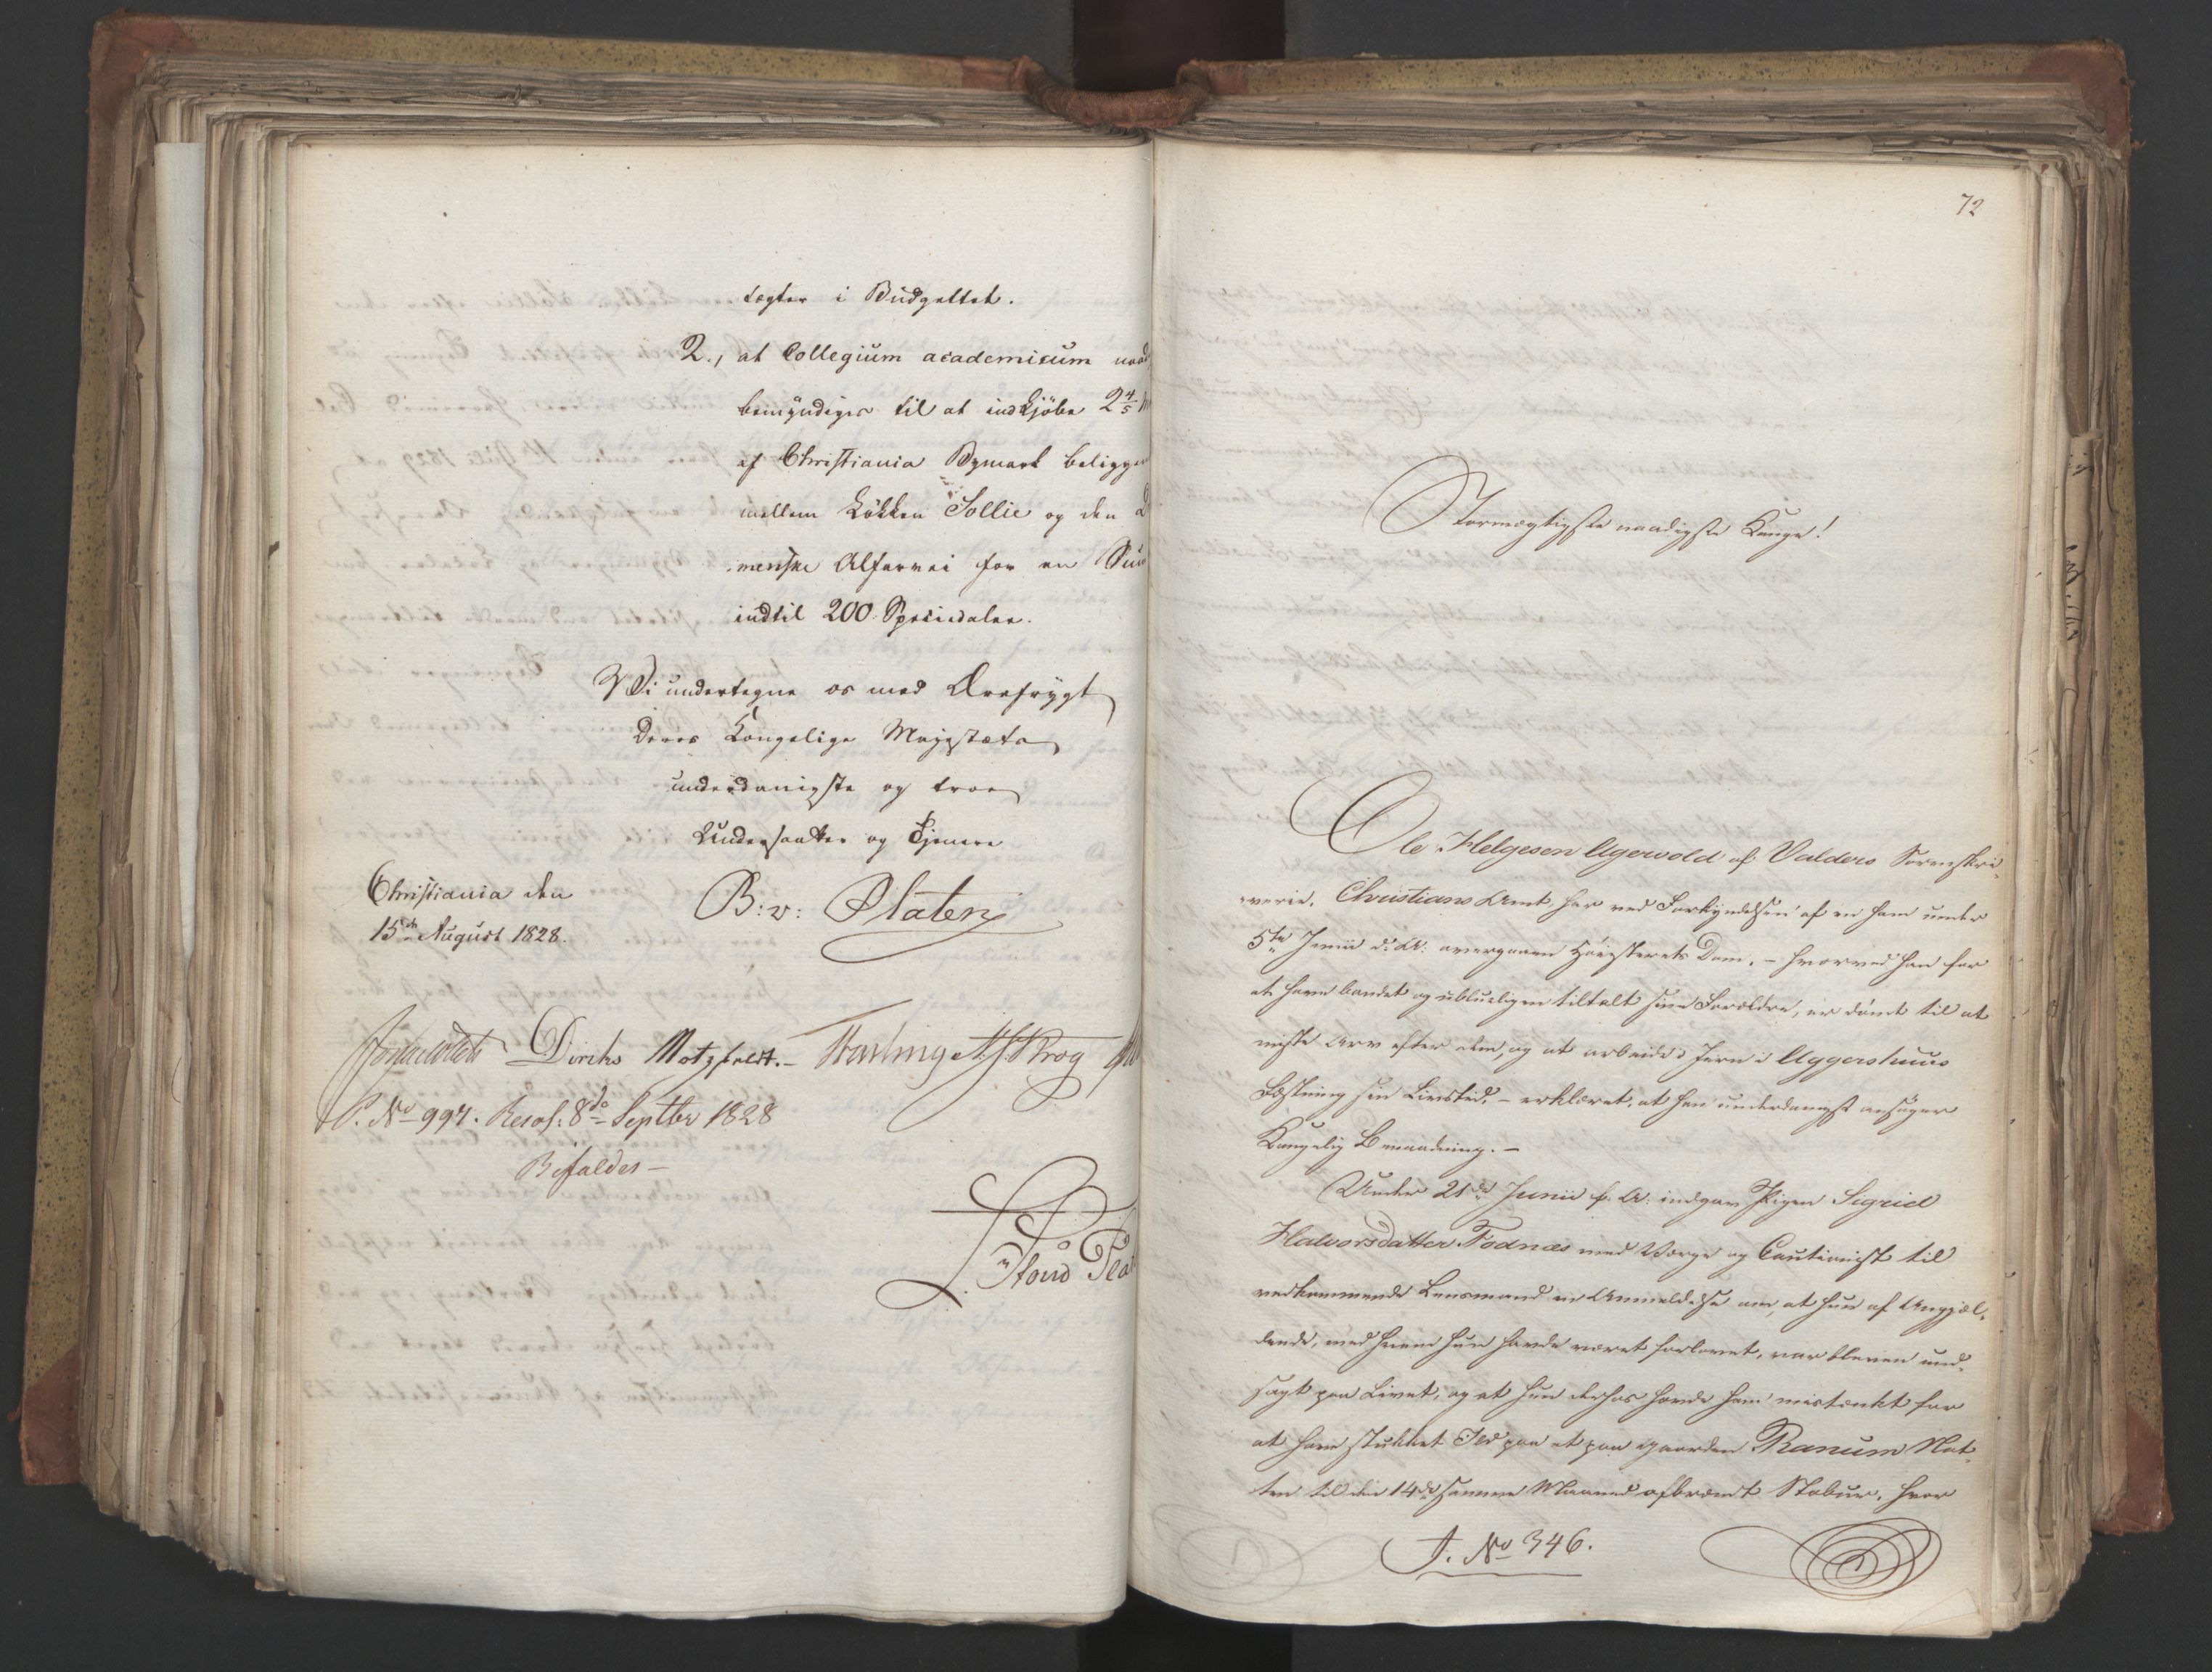 tægter i Budgettet.
2., at Collegium academicum naad
bemyndiges til at indkjöbe 2 4/5 M
af Christiania Bymark beliggen
mellem Lökken Sollie og den D
menske Alfarvei for en Sum
indtil 200 Speciedaler.
Vi undertegne os med Ærefrygt
Deres Kongelige Majestæts
underdanigste og troe
Undersaatter og Tjenere
Christiania den
15de August 1828.
B: v: Platen
Diriks Motzfeldt.- Krog
P. No 997. Resol: 8de Septbr 1828
Bifaldes-
72
Stormægtigste naadigste Konge!
Ole Helgesen Agerwold af Valders Sorenskri-
verie, Christians Amt, har ved Forkyndelsen af en ham under
5te Junii d: A: overgaaen Höiesterets Dom, - hvorved han for
at have bandet og ublueligen tiltalt sine Forældre, er dömt til at
miste Arv efter dem, og at arbeide i Jern i Aggershuus
Fæstning sin Livstid, - erklæret, at han underdanigst ansöger
Kongelig Benaadning. -
Under 21de Junii f. A: indgav Pigen Sigrid
Halvorsdatter Fodnæs med Værge og Cautionist til
vedkommende Lensmand en Anmeldelse om, at hun af Angjæl-
dende, med hvem hun havde været forlovet, var bleven und-
sagt paa Livet, og at hun derhos havde ham mistænkt for
at have stukket Ild paa et paa Gaarden Ranum Nat-
ten til den 14de samme Maaned afbrændt Stabur, hvor
J. No 346.